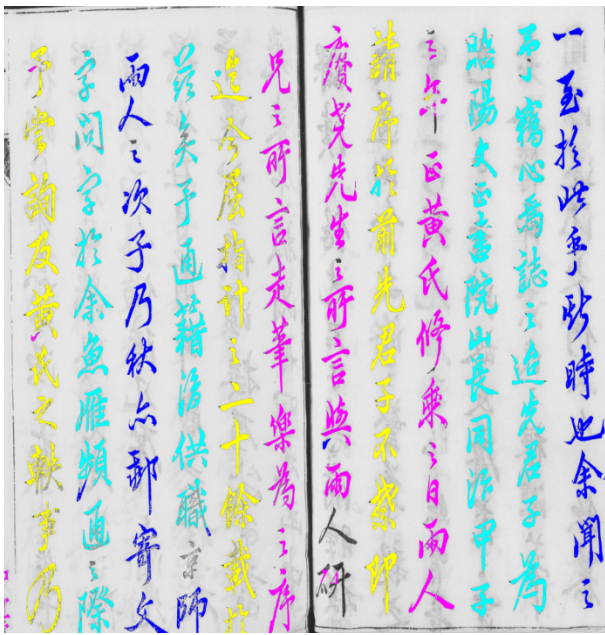 一至於此乎斯時也余聞之
予竊心焉誌之迨先君子為
昭陽大正書院山長同治甲子
之年正黃氏修乘之日兩人
請序於前先君子不察即
賡堯先生之所言與兩人研
兄之所言走筆樂為之序
迄今屈指計之二十餘載於
茲矣予通籍後供職京師
兩人之次子乃秋亦郵寄文
字問字於余魚雁頻通之際
予嘗詢及黃氏之軼事乃